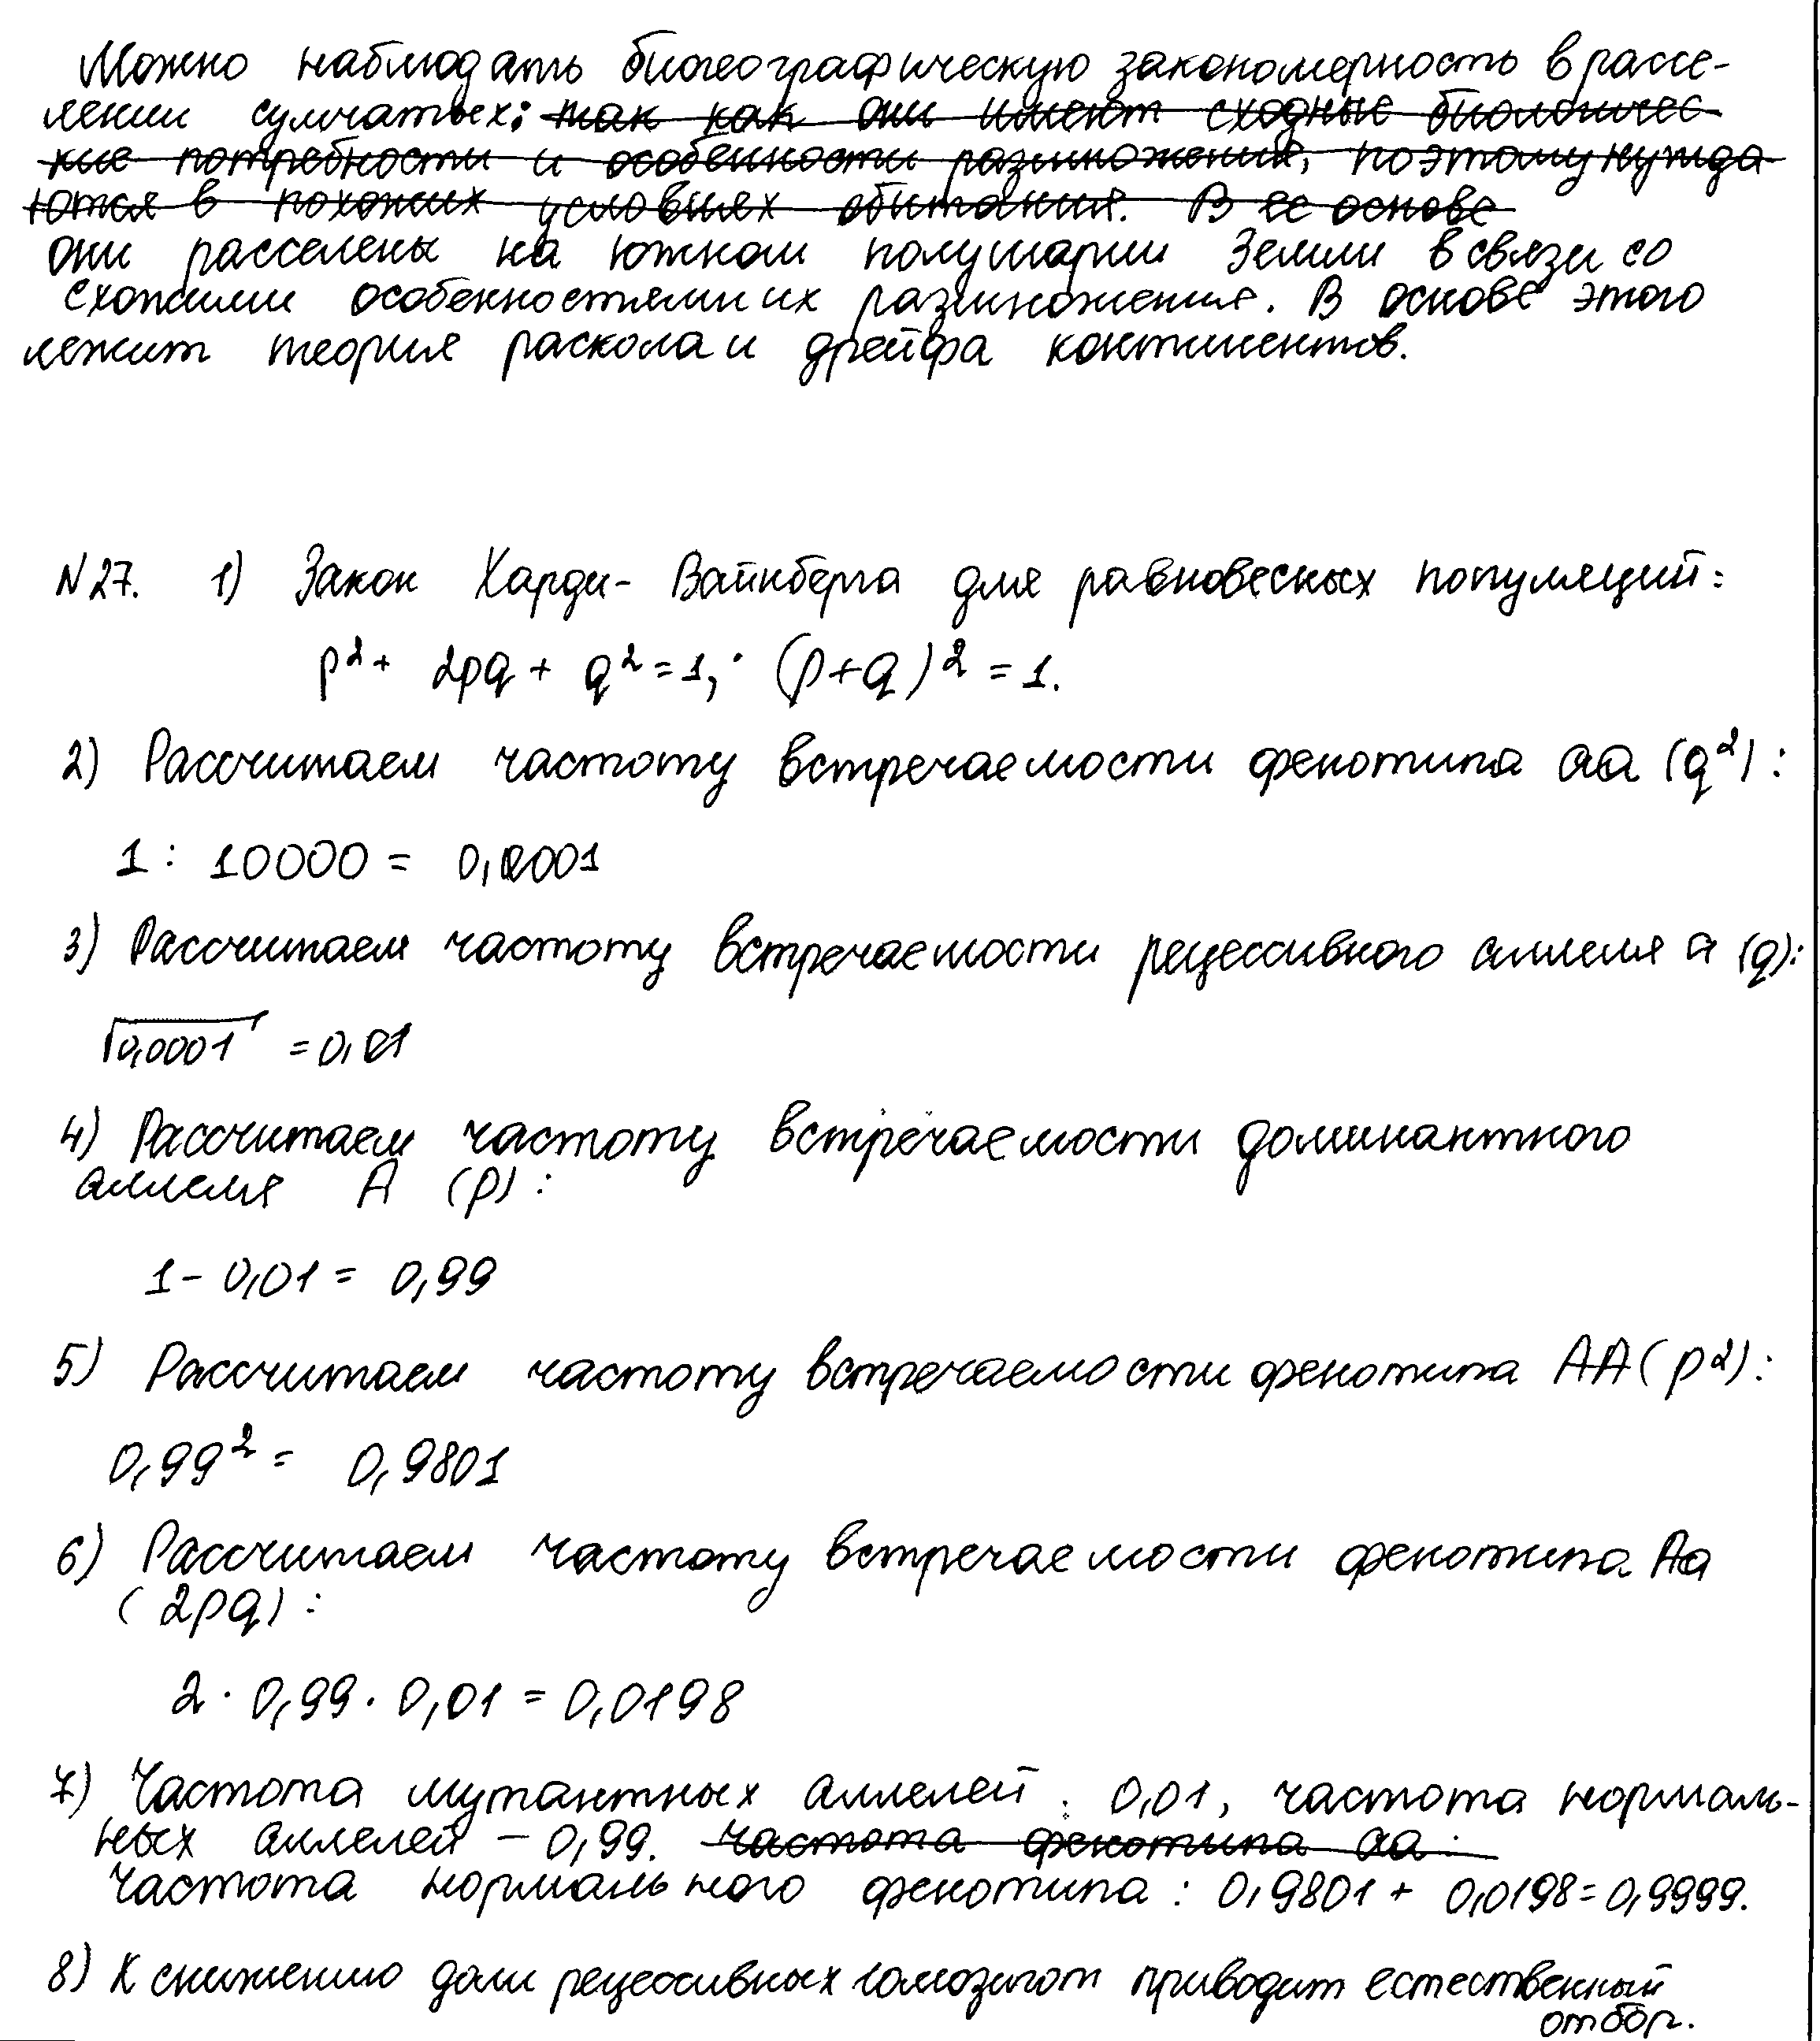 Можно наблюдать биогеографическую закономерность в рассе-
лении сумчатых: так как они имеют сходные биологичес-
кие потребности и особенности размножения, поэтому нужда-
ются в похожих условиях обитания. В ее основе
они расселены на южном полушарии Земли в связи со
схожими особенностями их размножения. В основе этого
лежит теория раскола и дрейфа континентов.
№27. 1) Закон Харди-Вайнберга для равновесных популяций:
p² + 2pq + q² = 1; (p+q)² = 1.
2) Рассчитаем частоту встречаемости фенотипа aa (q²):
1 : 10000 = 0,0001
3) Рассчитаем частоту встречаемости рецессивного аллеля a (q):
√0,0001 = 0,01
4) Рассчитаем частоту встречаемости доминантного
аллеля A (p):
1 - 0,01 = 0,99
5) Рассчитаем частоту встречаемости фенотипа AA (p²):
0,99² = 0,9801
6) Рассчитаем частоту встречаемости фенотипа Aa
(2pq):
2 · 0,99 · 0,01 = 0,0198
7) Частота мутантных аллелей : 0,01, частота нормаль-
ных аллелей – 0,99. частота фенотипа aa :
Частота нормального фенотипа : 0,9801 + 0,0198 = 0,9999.
8) К снижению доли рецессивных гомозигот приводит естественный
отбор.